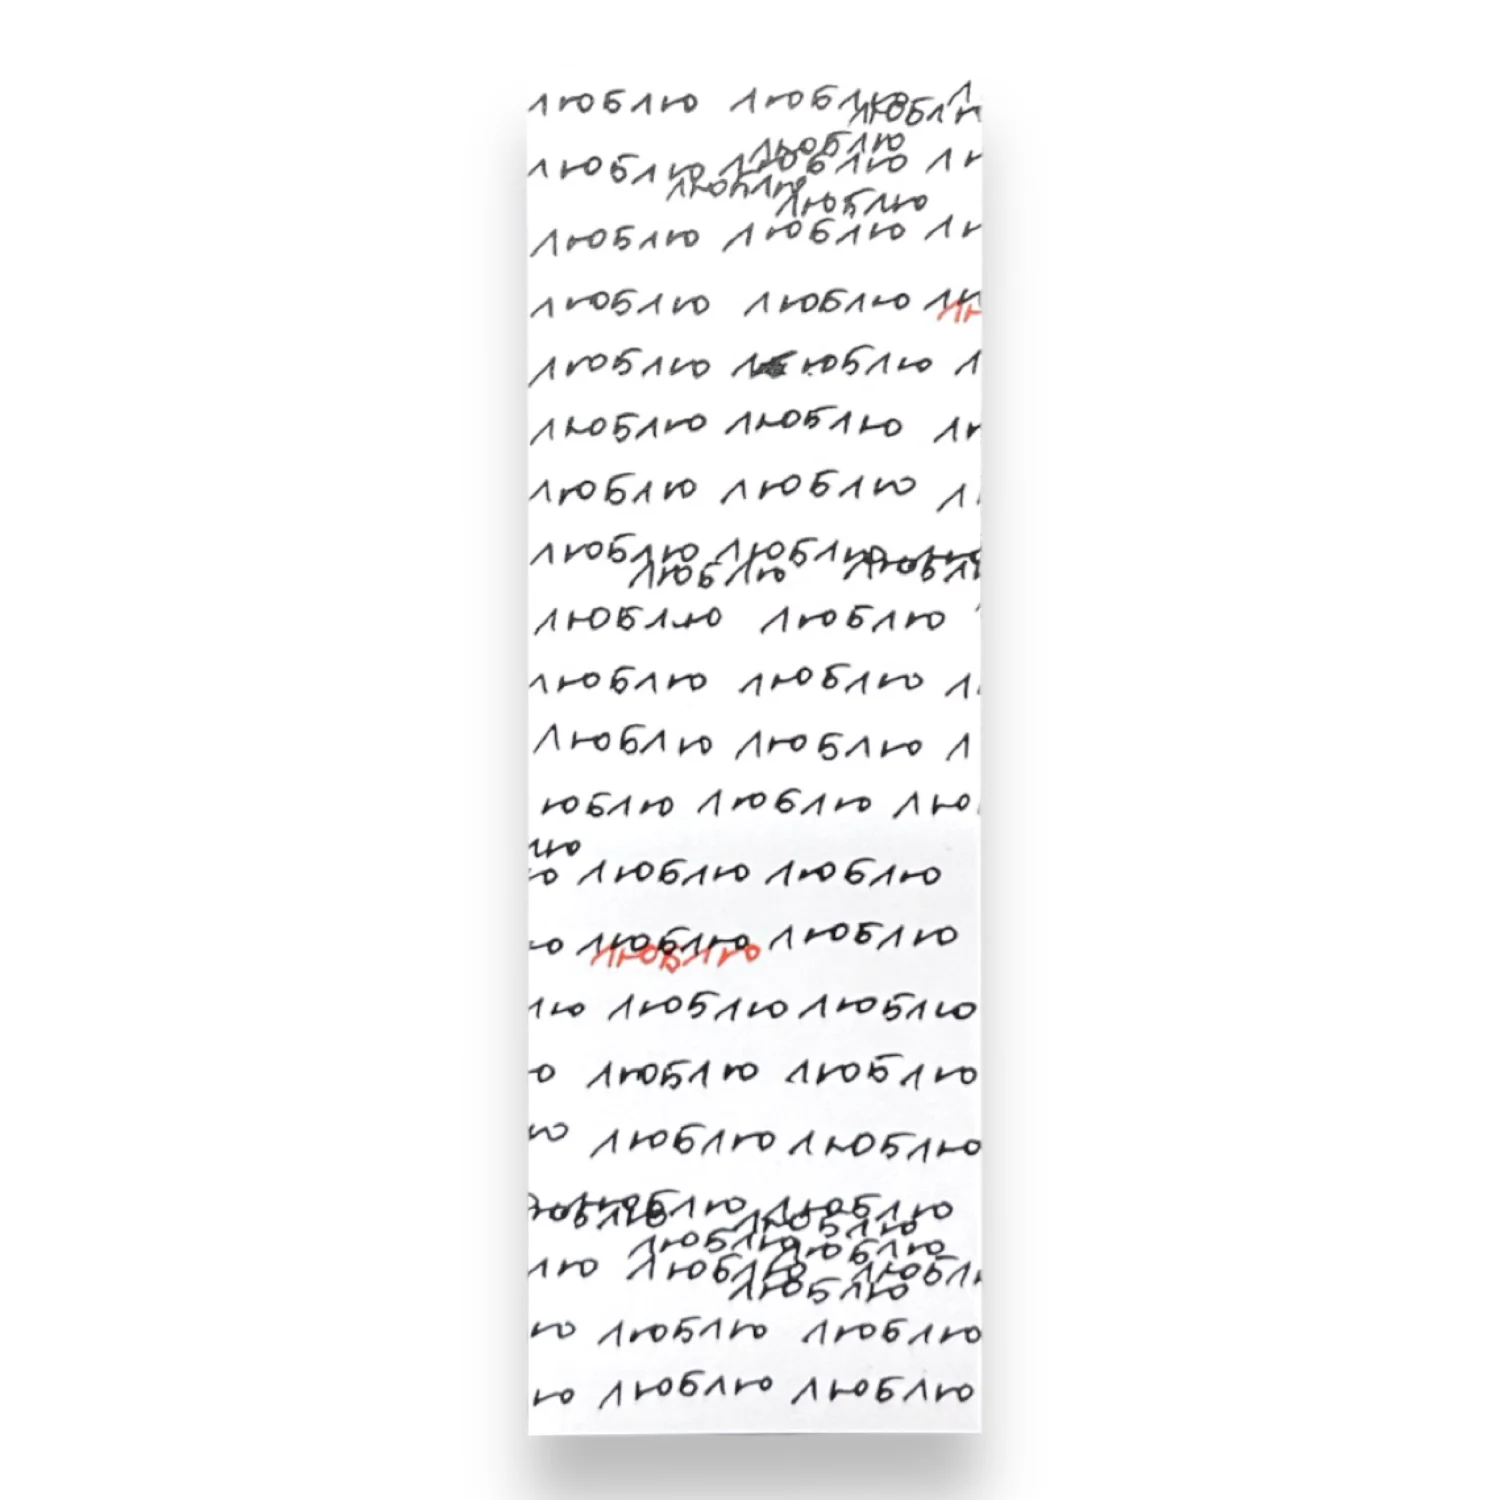 люблю люблю л
люблю
люблю
люблю люблю лю
люблю
люблю
люблю люблю лю
люблю люблю лю
лю
люблю люблю л
люблю люблю лю
люблю люблю л
люблю люблю
люблю люблю
люблю люблю
люблю люблю л
люблю люблю л
юблю люблю лю
лю
ю люблю люблю
ю люблю люблю
люблю
лю люблю люблю
ю люблю люблю
ю люблю люблю
люблю люблю
люблю люблю
люблю люблю
лю люблю люблю
люблю
ю люблю люблю
ю люблю люблю